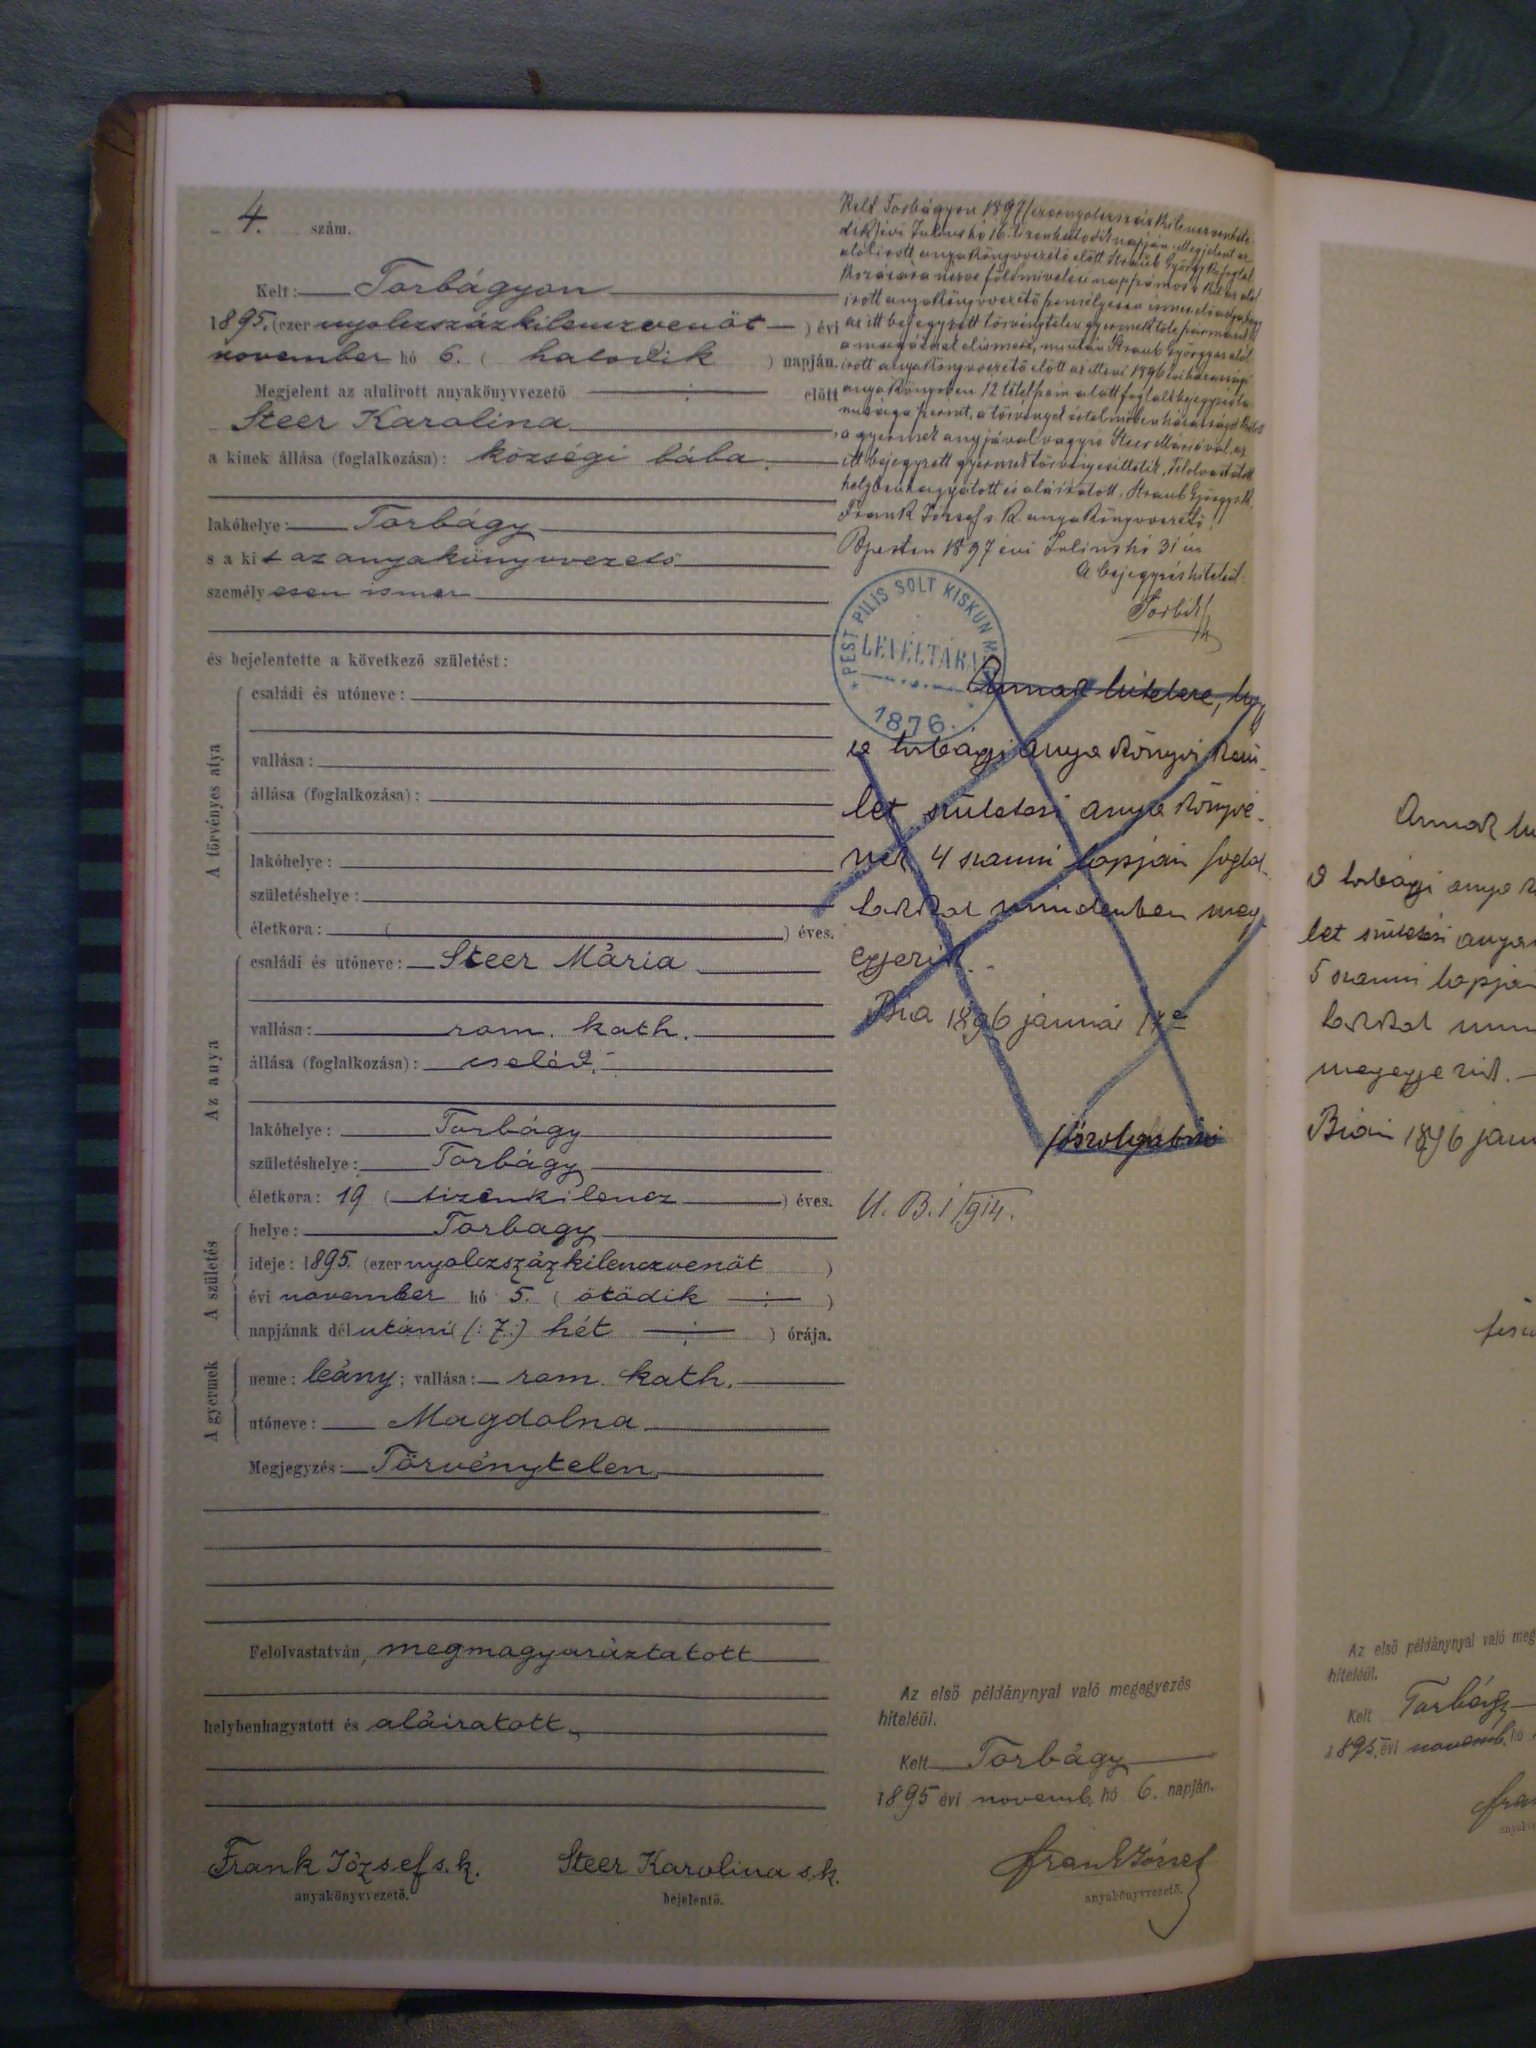 4. szám.
Kelt: Torbágyon
1895. (ezer nyolczszázkilenczvenöt) évi
november hó 6. (hatodik) napján.
Megjelent az alulirott anyakönyvvezető előtt
Steer Karolina
a kinek állása (foglalkozása): községi bába
lakóhelye: Torbágy
s a kit az anyakönyvvezető
személyesen ismer
és bejelentette a következő születést:
A törvényes atya
családi és utóneve:
vallása:
állása (foglalkozása):
lakóhelye:
születéshelye:
életkora: ( ) éves.
Az anya
családi és utóneve: Steer Mária
vallása: rom. kath.
állása (foglalkozása): cseléd
lakóhelye: Torbágy
születéshelye: Torbágy
életkora: 19 (tizenkilencz) éves.
A születés
helye: Torbagy
ideje: 1895. (ezer nyolczszázkilenczvenöt)
évi november hó 5. (ötödik)
napjának délutáni (: 7 :) hét ) órája.
A gyermek
neme: leány; vallása: rom. kath.
utóneve: Magdolna
Megjegyzés: Törvénytelen
Felolvastatván, megmagyaráztatott
helybenhagyatott és aláiratott
Frank József s. k.
anyakönyvvezető.
Steer Karolina s. k.
bejelentő.
Kelt Torbágyon 1897 (ezernyolczszázkilenczvenhete-
dik) évi Julius hó 16. tizenhatodik napján. Megjelent az
alólirott anyakönyvvezető előtt Straub György
nézve földmivelési napszámos
irott anyakönyvvezető személyesen ismer
az itt bejegyzett törvénytelen gyermeket
magáénak elismeri, miután Straub György az alól-
irott anyakönyvvezető előtt az 1896 évi házassági
anyakönyvben 12 tétel szám alatt foglalt bejegyzés ta-
nusága szerint, a törvényes értelmében házasságot
a gyermek anyjával vagyis Steer Máriával, az
itt bejegyzett gyermek törvényesittetik. Felolvastatott
helybenhagyatott és aláiratott. Straub György s. k.
Frank József s. k. anyakönyvvezető
Bpesten 1897 évi Julius hó 31 én
A bejegyzés hiteléül:
PEST PILIS SOLT KISKUN
LEVÉLTÁRA
1876.
Annak hitelere, hogy
a torbágyi anyakönyvi kerü-
let születési anyakönyvé-
nek 4 számú lapján foglal-
takkal mindenben meg
egyezik.
Bia 1896 január
főszolgabiró
U. B. I/914.
Az első példánynyal való megegyezés
hiteléül.
Kelt Torbágy
1895 évi novemb. hó 6. napján.
Frank József
anyakönyvvezető.
Annak hi
a torbágyi anyak
let születési anya
5 számú lapján
takkal min
megegyezik.
Bián 1896 jan
Az első példánynyal való meg
hiteléül.
Kelt Torbágy
1895. évi novemb. hó